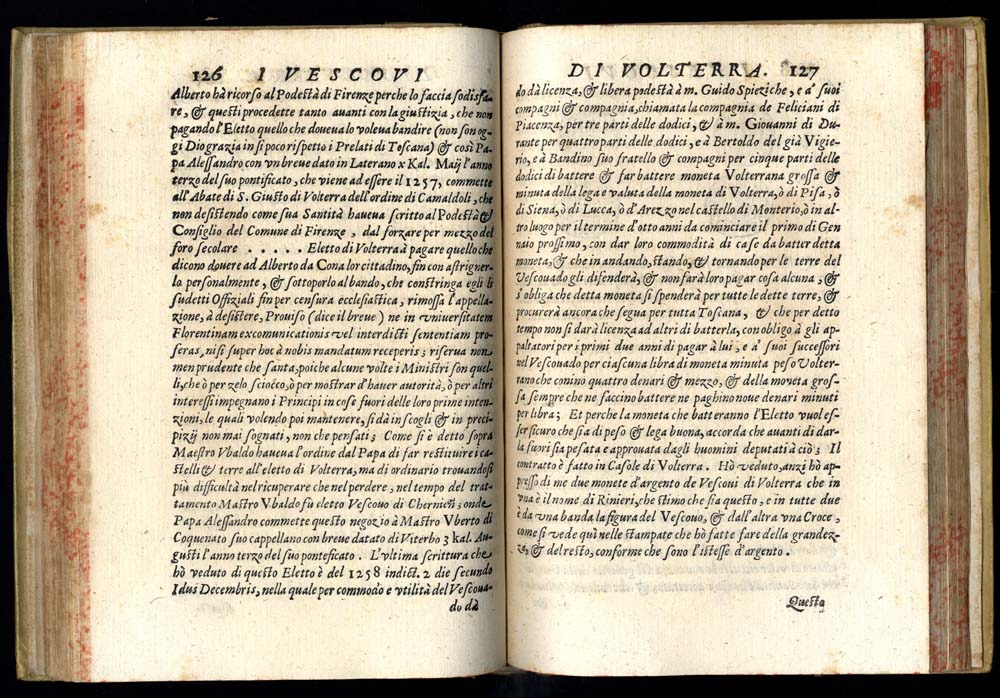 126 I VESCOVI
Alberto hà ricorso al Podestà di Firenze perche lo faccia sodisfa-
re, & questi procedette tanto auanti con la giustizia, che non
pagando l'Eletto quello che doueua lo voleua bandire (non son og-
gi Diograzia in sì poco rispetto i Prelati di Toscana) & così Pa-
pa Alessandro con vn breue dato in Laterano x Kal. Maij l'anno
terzo del suo pontificato, che viene ad essere il 1257, commette
all'Abate di S. Giusto di Volterra dell'ordine di Camaldoli, che
non desistendo come sua Santità haueua scritto al Podestà &
Consiglio del Comune di Firenze, dal forzare per mezzo del
foro secolare . . . . . Eletto di Volterra à pagare quello che
dicono douere ad Alberto da Cona lor cittadino, fin con astrigner-
lo personalmente, & sottoporlo al bando, che constringa egli li
sudetti Offiziali fin per censura ecclesiastica, rimossa l'appella-
zione, à desistere, Prouiso (dice il breue) ne in vniuersitatem
Florentinam excomunicationis vel interdicti sententiam pro-
feras, nisi super hoc à nobis mandatum receperis; riserua non
men prudente che santa, poiche alcune volte i Ministri son quel-
li, che ò per zelo sciocco, ò per mostrar d'hauer autorità, ò per altri
interessi impegnano i Principi in cose fuori delle loro prime inten-
zioni, le quali volendo poi mantenere, si dà in scogli & in preci-
pizij non mai sognati, non che pensati; Come si è detto sopra
Maestro Vbaldo haueua l'ordine dal Papa di far restituire i ca-
stelli & terre all'eletto di Volterra, ma di ordinario trouandosi
più difficultà nel ricuperare che nel perdere, nel tempo del trat-
tamento Mastro Vbaldo fù detto Vescouo di ; onde
Papa Alessandro commette questo negozio à Mastro Vberto di
Coquenato suo cappellano con breue datato di Viterbo 3 kal. Au-
gusti l'anno terzo del suo ponteficato. L'vltima scrittura che
hò veduto di questo Eletto è del 1258 indict. 2 die secundo
Idus Decembris, nella quale per commodo e vtilità del Vescoua-
do dà
DI VOLTERRA. 127
do dà licenza, & libera podestà à m. Guido Spieziche, e a' suoi
compagni & compagnia, chiamata la compagnia de Feliciani di
Piacenza, per tre parti delle dodici, & à m. Giouanni di Du-
rante per quattro parti delle dodici, e à Bertoldo del già Vigie-
rio, e à Bandino suo fratello & compagni per cinque parti delle
dodici di battere & far battere moneta Volterrana grossa &
minuta della lega e valuta della moneta di Volterra, ò di Pisa, ò
di Siena, ò di Lucca, ò d'Arezzo nel castello di Monterio, ò in al-
tro luogo per il termine d'otto anni da cominciare il primo di Gen
naio prossimo, con dar loro commodità di case da batter detta
moneta, & che in andando, stando, & tornando per le terre del
Vescouado gli difenderà, & non farà loro pagar cosa alcuna, &
s'obliga che detta moneta si spenderà per tutte le dette terre, &
procurerà ancora che segua per tutta Toscana, & che per detto
tempo non si darà licenza ad altri di batterla, con obligo à gli ap-
paltatori per i primi due anni di pagar à lui, e a' suoi successori
nel Vescouado per ciascuna libra di moneta minuta peso Volter-
rano che conino quattro denari & mezzo, & della moneta gros-
sa sempre che ne faccino battere ne paghino noue denari minuti
per libra; Et perche la moneta che batteranno l'Eletto vuol es-
ser sicuro che sia di peso & lega buona, accorda che auanti di dar-
la fuori sia pesata e approuata dagli huomini deputati à ciò; Il
contratto è fatto in Casole di Volterra. Hò veduto, anzi hò ap-
presso di me due monete d'argento de Vescoui di Volterra che in
vna è il nome di Rinieri, che stimo che sia questo, e in tutte due
è da vna banda la figura del Vescouo, & dall'altra vna Croce,
come si vede quì nelle stampate che hò fatte fare della grandez-
za, & del resto, conforme che sono l'istesse d'argento.
Questo